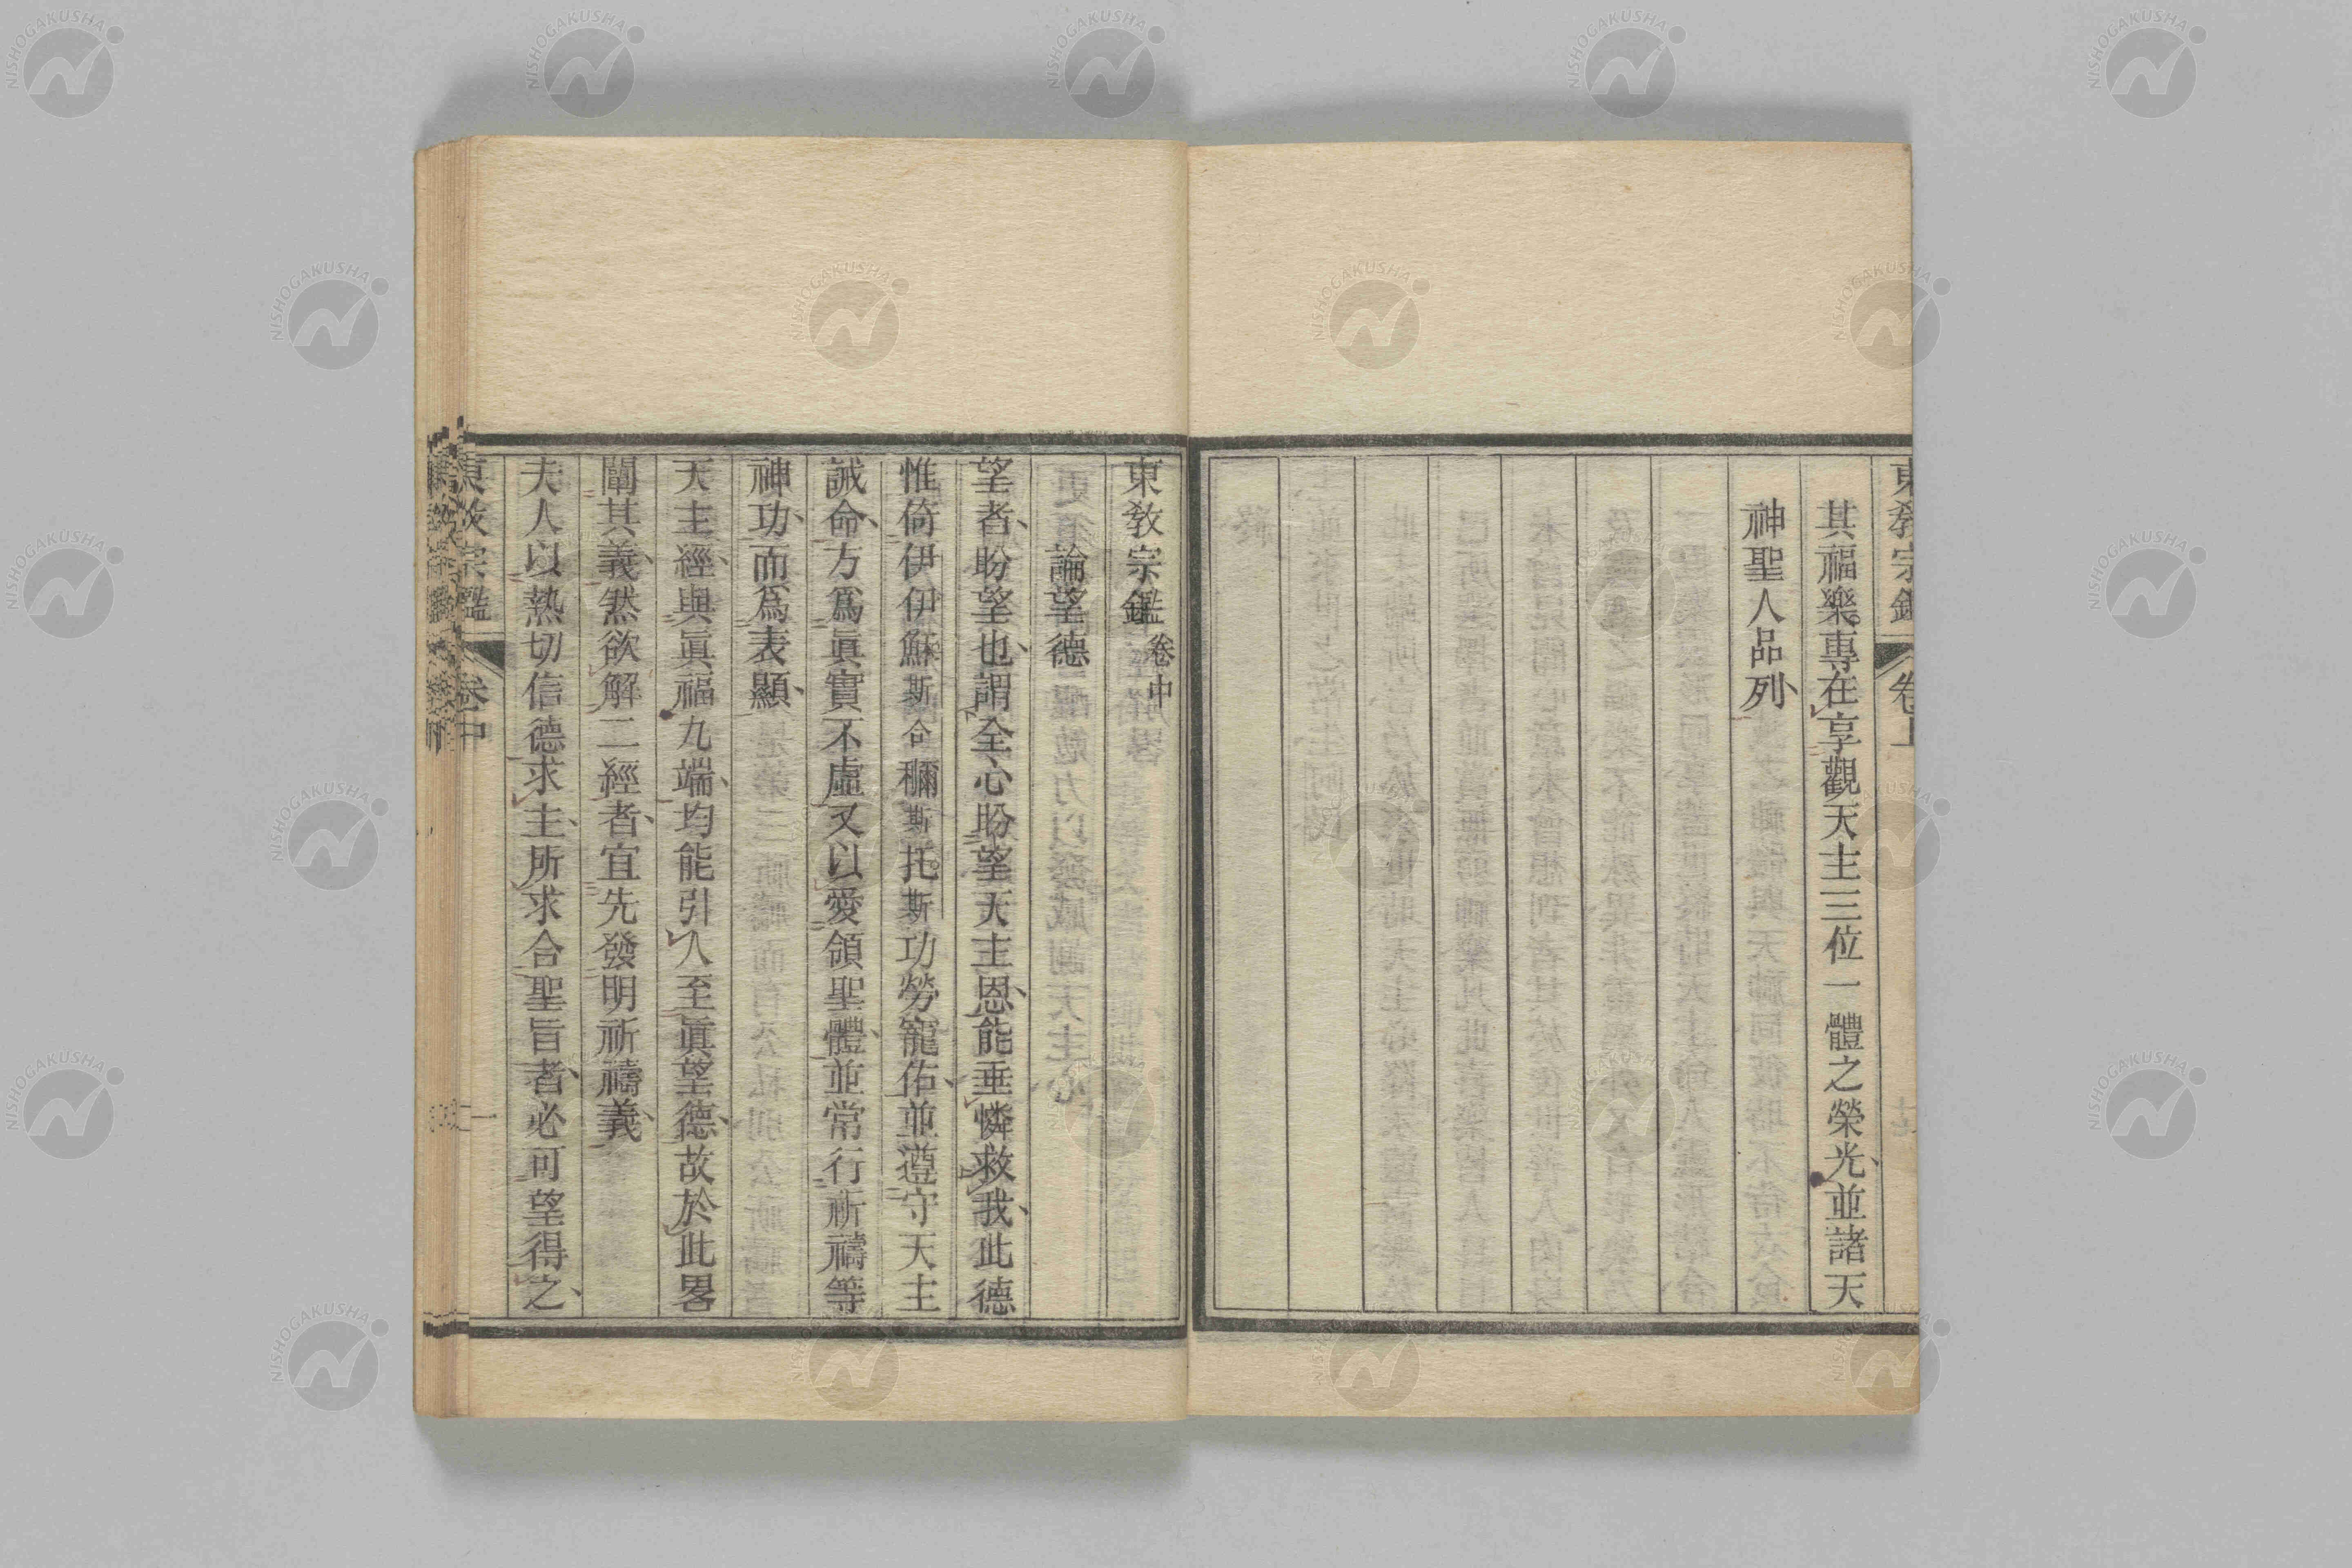 其福樂專在享觀天主三位一體之榮光並諸天
神聖人品列
東敎宗鑑卷中
論望德
望者盼望也謂全心盼望天主恩能垂憐救我此德
惟倚伊伊穌斯合穪斯托斯功勞寵佑並遵守天主
誡命方爲眞實不虛又以愛領聖體並常行祈禱等
神功而爲表顯
天主經與眞福九端均能引人至眞望德故於此畧
闡其義然欲解二經者宜先發明祈禱義
夫人以熱切信德求主所求合聖旨者必可望得之
東敎宗鑑 卷中 一
NISHOGAKUSHA